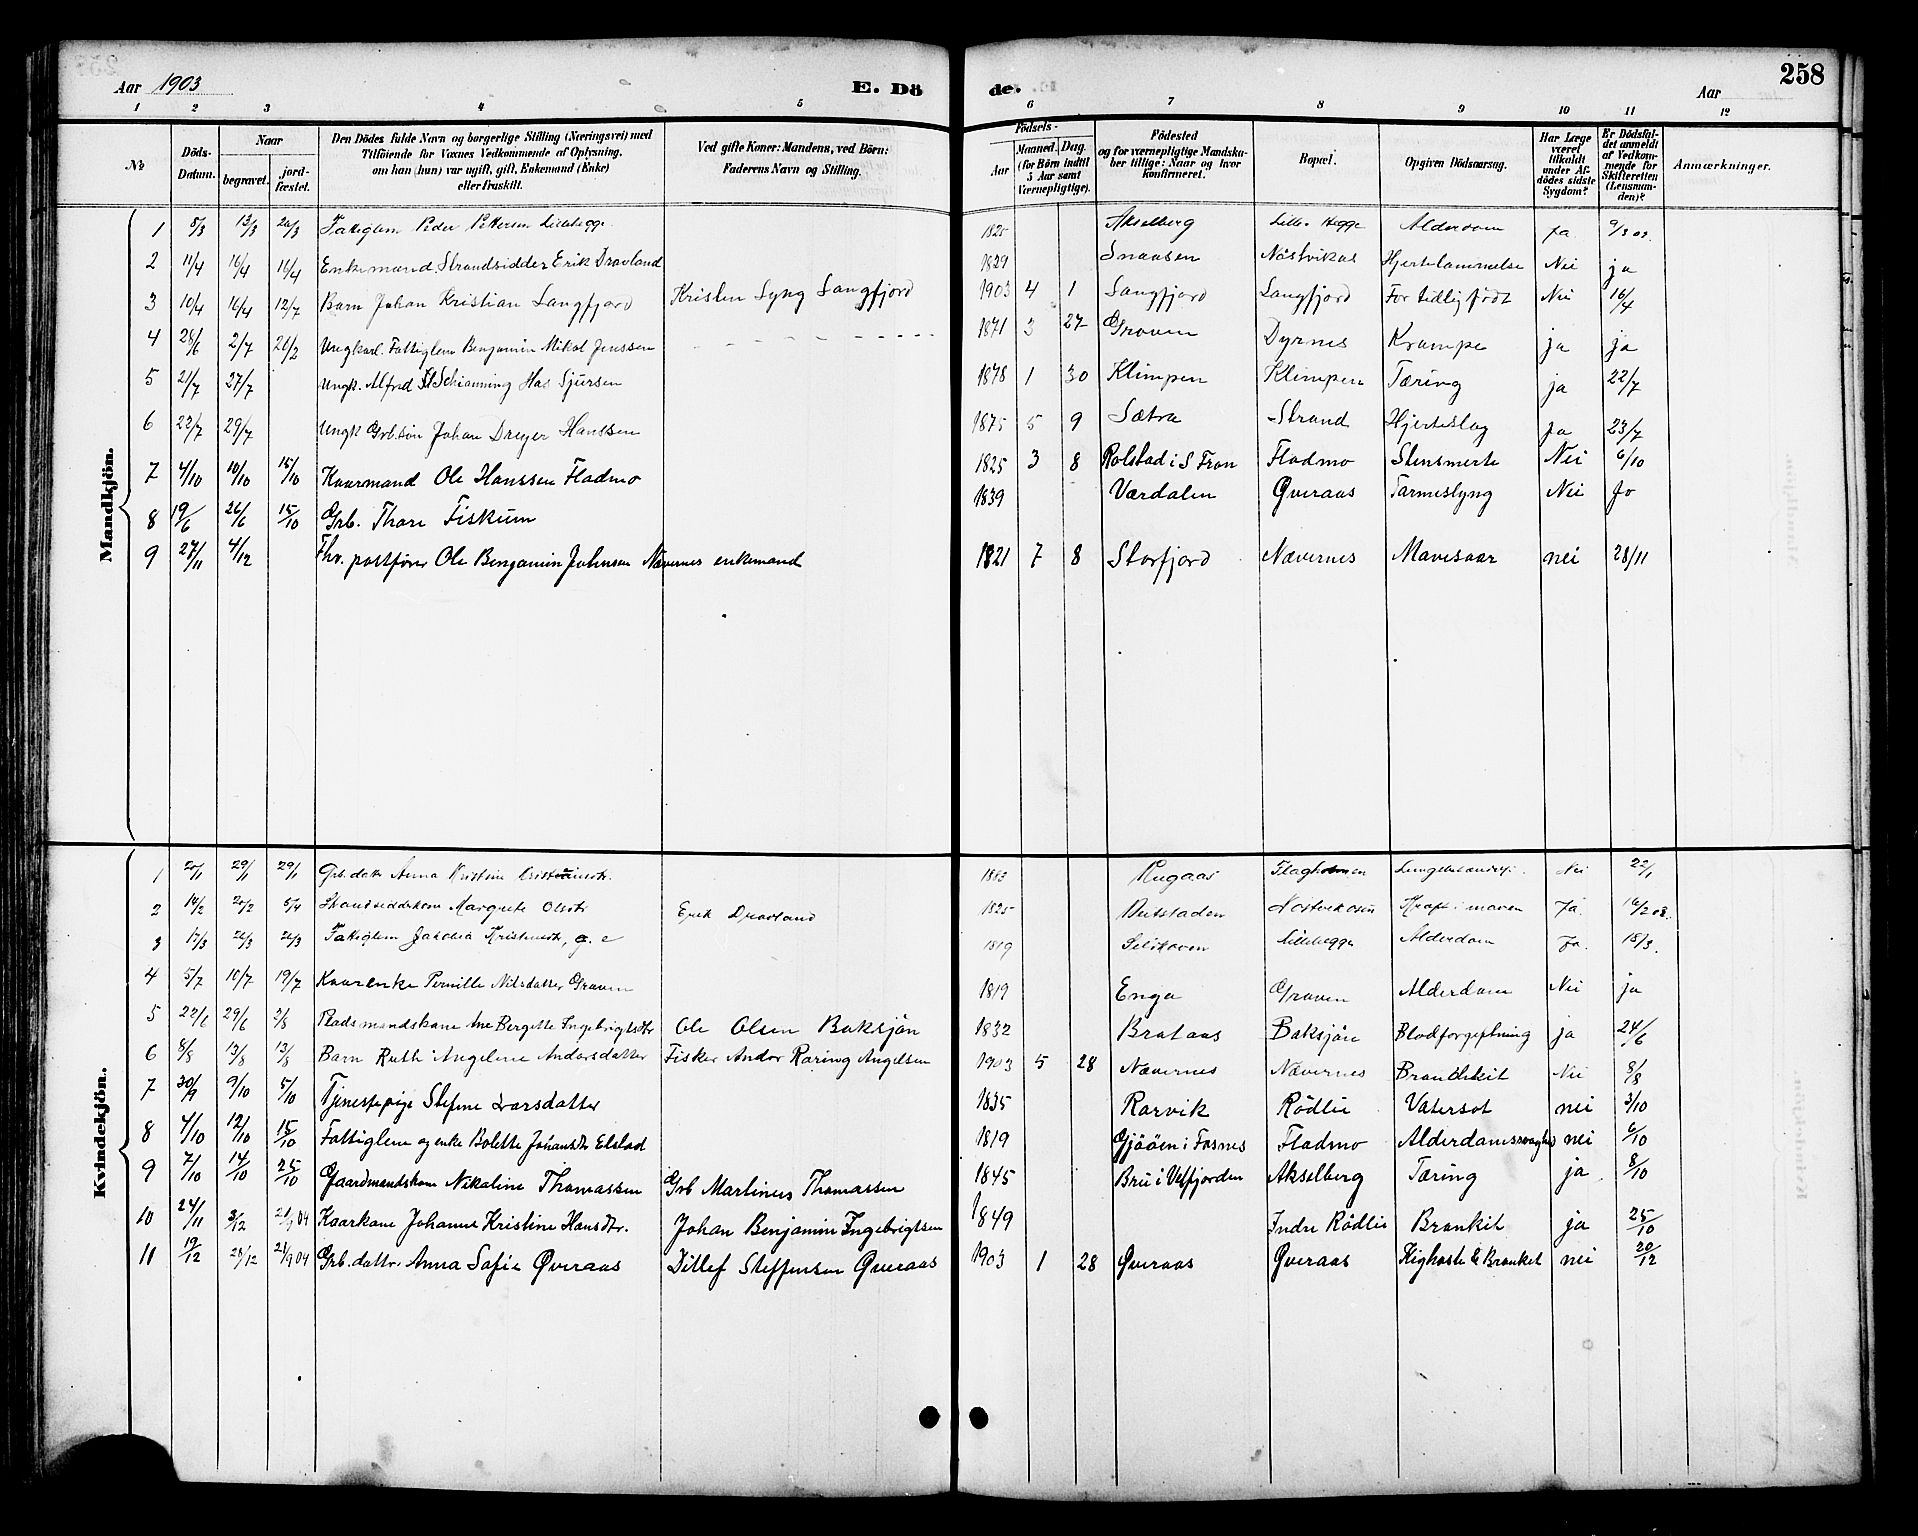 258
Aar 1903 E. Dö de. Aar
1 2 3 4 5 6 7 8 9 10 11 12
№ Döds-Datum. Naar begravet. jord-fæstet. Den Dödes fulde Navn og borgerlige Stilling (Næringsvei) med Tilföiende for Voxnes Vedkommende af Oplysning, om han (hun) var ugift, gift, Enkemand (Enke) eller fraskilt. Ved gifte Koner: Mandens, ved Börn: Faderens Navn og Stilling. Födsels- Aar Maaned. Dag. (for Börn indtil 5 Aar samt Værnepligtige). Födested og for værnepligtige Mandska-ber tillige: Naar og hvor konfirmeret. Bopæl. Opgiven Dödsaarsag. Har Læge været tilkaldt under Af-dödes sidste Sygdom? Er Dödsfal-det anmeldt af Vedkom-mende for Skifteretten (Lensman-den)? Anmærkninger.
Mandkjön.
1 8/3 13/3 26/3 Fattiglem Peder Pettersen Lillehegge 1825 Akselberg Lille Hegge Alderdom Ja 9/3 03.
2 11/4 16/4 16/4 Enkemand Strandsidder Erik Dravland 1829 Snaasen Nöstvikas Hjertelammelse Nei ja
3 10/4 16/4 12/7 Barn Johan Kristian Langfjord Kristen Lyng Langfjord 1903 4 1 Langfjord Langfjord For tidlig födt Nei 16/4
4 28/6 2/7 Ungkarl. Fattiglem Benjamin Mikal Jenssen 1871 3 27 Graven Dyrnes Krampe ja ja
5 21/7 27/7 Ungk. Alfred Schianning Has Sjursen 1878 1 30 Klimpen Klimpen Tæring ja 22/7
6 22/7 29/7 Ungk Grb.sön Johan Dreyer Hanssen 1875 5 9 Sætra Strand Hjerteslag Ja 23/7
7 4/10 10/10 15/10 Kaarmand Ole Hanssen Fladmo 1825 3 8 Rolstad i S Fron Fladmo Stensmerte Nei 6/10
8 19/6 26/6 15/10 Grb. Thore Fiskum 1839 Værdalen Qveraas Tarmeslyng Nei Jo
9 27/11 4/12 Fhv. postförer Ole Benjamin Johnsen Nævernes enkemand 1821 7 8 Storfjord Nævernes Mavesaar nei 28/11
Kvindekjön.
1 20/1 29/1 29/1 Grb.datter Anna Kristine 1883 Flagholmen Nei 22/1
2 14/2 20/2 5/4 Strandsidderkone Margrete Olsdtr Erik Dravland 1825 Beitstaden Kræft i maven Ja. 16/2 03.
3 17/3 26/3 26/3 Fattiglem Jakobia Kristensdtr, g. e 1819 Lillehegge Alderdom Ja. 18/3.
4 5/7 10/7 19/7 Kaarenke Pernille Nilsdatter Graven 1819 Enga Graven Alderdom Nei ja
5 22/6 29/6 2/8 Pladsmandskone Ane Bergitte Ingebrigtsdtr Ole Olsen Baksjön 1832 Brataas Baksjön Blodforgiftning ja 24/6
6 8/8 13/8 13/8 Barn Ruth Angeline Andorsdatter Fisker Andor Raring Angelsen 1903 5 28 Nævernes Nævernes Bronchit Nei 8/8
7 30/9 9/10 5/10 Tjenestepige Stefine Larsdatter 1835 Rarvik Rödlie Vatersot nei 3/10
8 4/10 12/10 15/10 Fattiglem og enke Bolette Johansdtr Elstad 1819 Gjööen i Fosnes Fladmo Alderdomssvaghed nei 6/10
9 7/10 14/10 25/10 Gaardmandskone Nikoline Thomassen Grb Martinus Thomassen 1845 Bru i Velfjorden Akselberg Tæring ja 8/10
10 24/11 3/12 21/1 04 Kaarkone Johanne Kristine Hansdtr. Johan Benjamin Ingebrigtsen 1849 Indre Rödlie Bronkit ja 25/10
11 19/12 28/12 Grb.datter Anna Sofie Qveraas Ditlef Steffensen Qveraas 1903 1 28 Qveraas Qveraas Kighoste & Bronkit nei 20/12